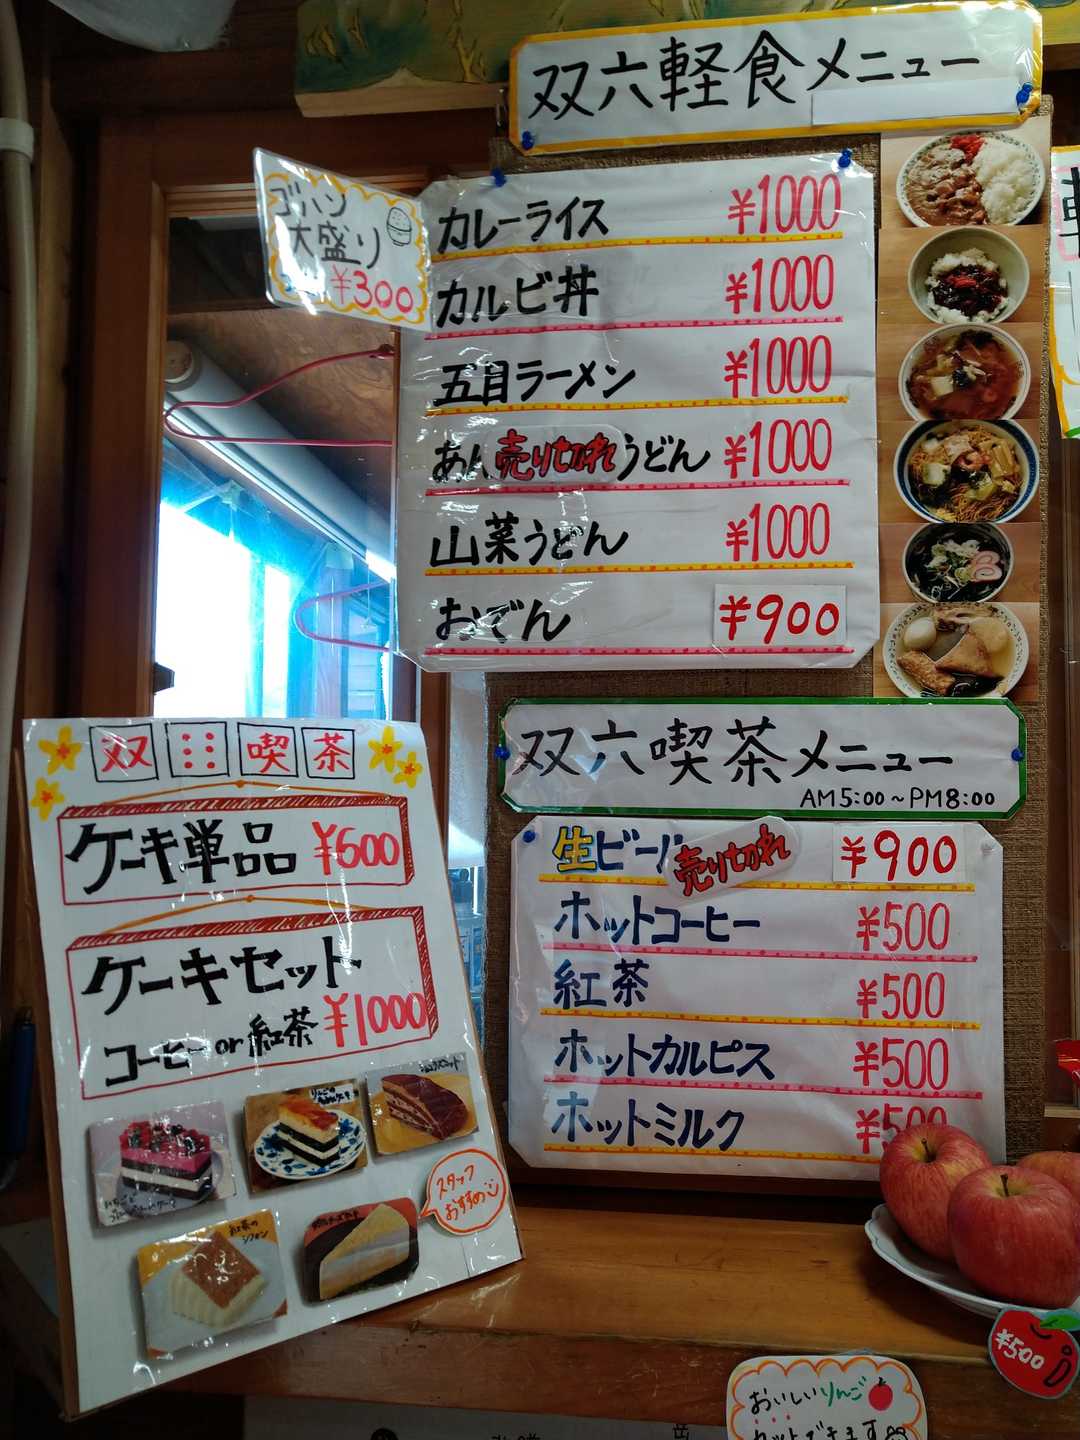 双六軽食メニュー
ゴハン
大盛り
¥300
カレーライス ¥1000
カルビ丼 ¥1000
五目ラーメン ¥1000
あん 売り切れ うどん ¥1000
山菜うどん ¥1000
おでん ¥900
双六喫茶メニュー
AM5:00~PM8:00
生ビール 売り切れ ¥900
ホットコーヒー ¥500
紅茶 ¥500
ホットカルピス ¥500
ホットミルク ¥500
双 喫茶
ケーキ単品 ¥600
ケーキセット
コーヒー or 紅茶 ¥1000
りんごの
紅茶の
シフォン
スタッフ
おすすめ
¥500
おいしいりんご
カットできます